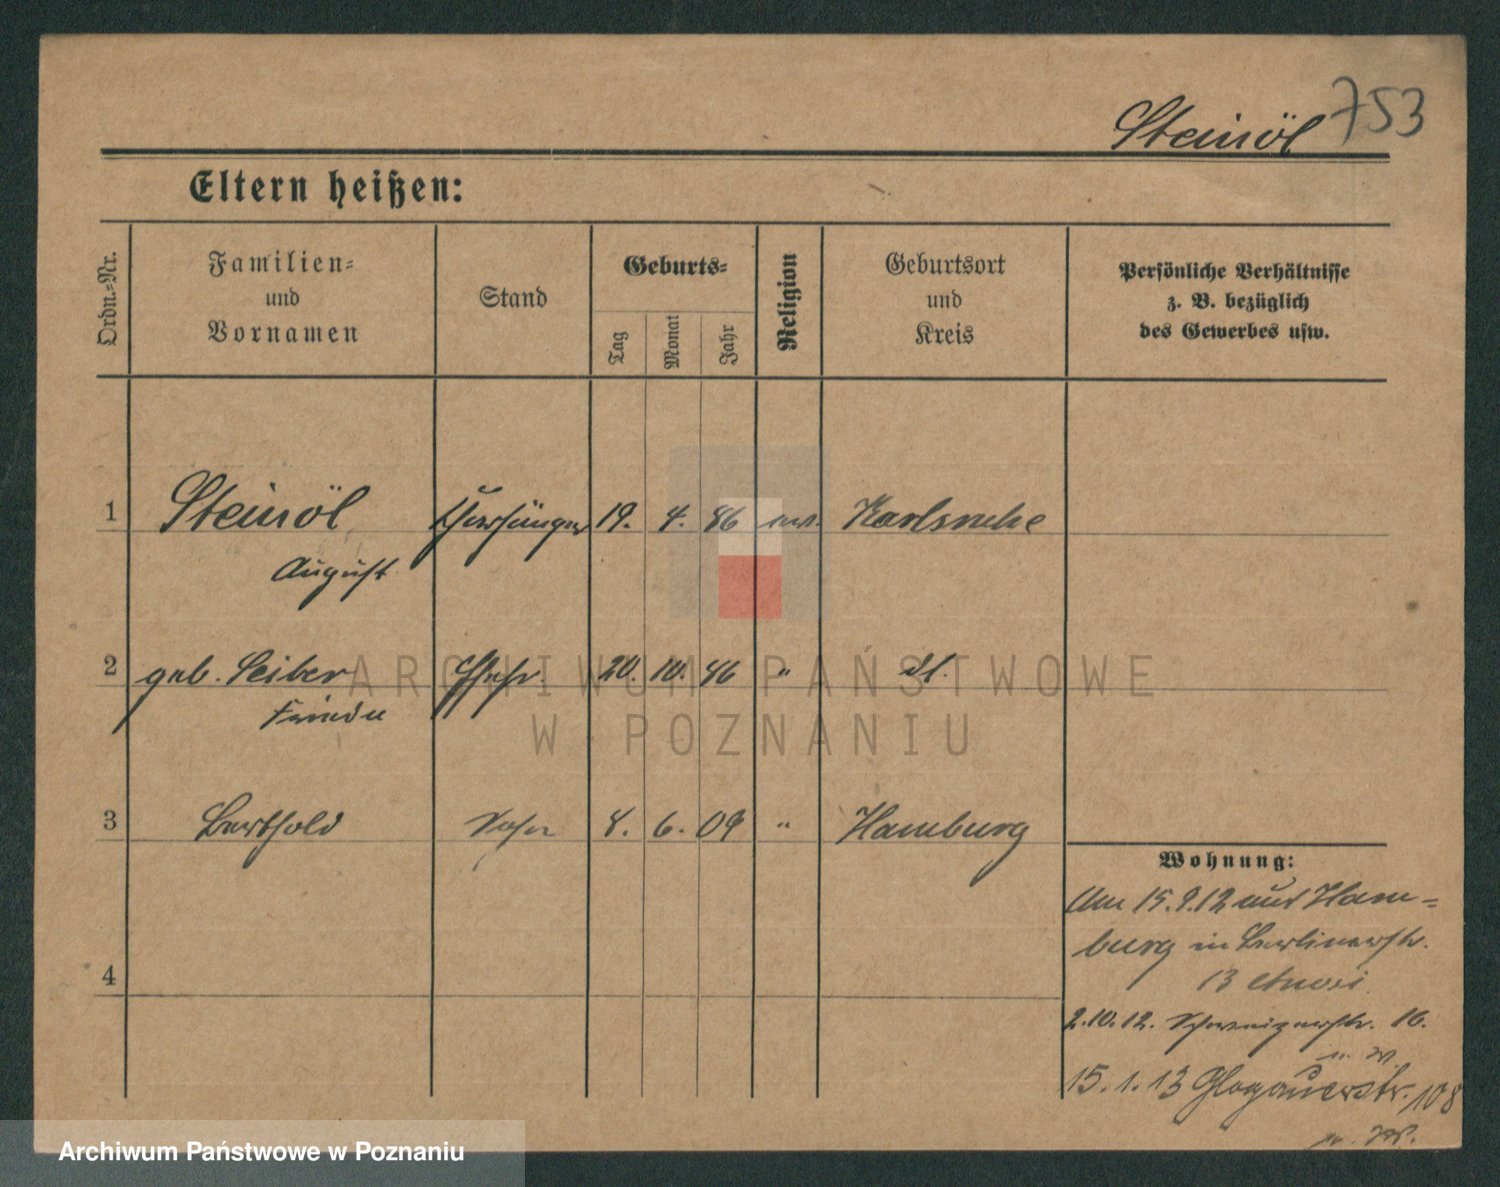 Steinöl 753
Eltern heißen:
Ordn.-Nr.
Familien-
und
Vornamen
Stand
Geburts-
Tag
Monat
Jahr
Religion
Geburtsort
und
Kreis
Persönliche Verhältnisse
z. B. bezüglich
des Gewerbes usw.
1 Steinöl 19. 4. 86 ev. Karlsruhe
August
2 geb. Leiber Ehefr. 20. 10. 86 " dt.
Frieda
ARCHIWUM PAŃSTWOWE
W POZNANIU
3 Berthold Sohn 8. 6. 09 " Hamburg
4
Wohnung:
Am 15.9.12 aus Ham-
burg in Berlinerstr.
13
2.10.12. 16.
15. 1. 13 Glogauerstr. 108
Archiwum Państwowe w Poznaniu